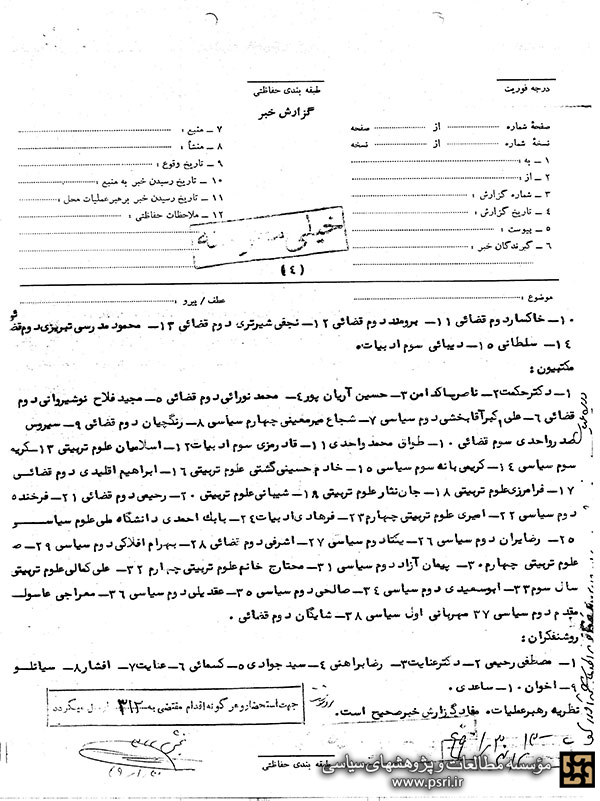 درجه فوریت
طبقه بندی حفاظتی
گزارش خبر
صفحهٔ شماره از صفحه
نسخهٔ شماره از نسخه
۱ ـ به :
۲ ـ از :
۳ ـ شماره گزارش :
۴ ـ تاریخ گزارش :
۵ ـ پیوست :
۶ ـ گیرندگان خبر :
۷ ـ منبع :
۸ ـ منشأ :
۹ ـ تاریخ وقوع :
۱۰ ـ تاریخ رسیدن خبر به منبع :
۱۱ ـ تاریخ رسیدن خبر برهبر عملیات محل :
۱۲ ـ ملاحظات حفاظتی :
خیلی
(٤)
موضوع : عطف / پیرو :
۱۰- خاکسار دوم قضائی ۱۱- برومند دوم قضائی ۱۲- نجفی شیرتری دوم قضائی ۱۳- محمود مدرسی تبریزی دوم
۱۴- سلطانی ۱۵- دیبائی سوم ادبیات
مکتبیون :
۱- دکتر حکمت ۲- ناصر پاکدامن ۳- حسین آریان پور ۴- محمد نورائی دوم قضائی ۵- مجید فلاح نوشیروانی دوم
قضائی ۶- علی اکبر آقابخشی دوم سیاسی ۷- شجاع میرمعینی چهارم سیاسی ۸- رنگچیان دوم قضائی ۹- سیروس
صدر واحدی سوم قضائی ۱۰- طواق محمد واحدی ۱۱- قادر مزی سوم ادبیات ۱۲- اسلامیان علوم تربیتی ۱۳-
سوم سیاسی ۱۴- کریمی بانه سوم سیاسی ۱۵- خادم حسینی گشتی علوم تربیتی ۱۶- ابراهیم اقلیدی دوم قضائی
۱۷- فرامرزی علوم تربیتی ۱۸- جان نثار علوم تربیتی ۱۹- شیبانی علوم تربیتی ۲۰- رحیمی دوم قضائی ۲۱- فرخنده
دوم سیاسی ۲۲- امیری علوم تربیتی چهارم ۲۳- فرهادی ادبیات ۲۴- بابک احمدی دانشگاه ملی علوم سیاسی
۲۵- رضا یران دوم سیاسی ۲۶- یکتا دوم سیاسی ۲۷- اشرفی دوم قضائی ۲۸- بهرام افلاکی دوم سیاسی ۲۹-
علوم تربیتی چهارم ۳۰- پیمان آزاد دوم سیاسی ۳۱- محتاج خانم علوم تربیتی چهارم ۳۲- علی کمالی علوم تربیتی
سال سوم ۳۳- ابوسعیدی دوم سیاسی ۳۴- صالحی دوم سیاسی ۳۵- عقدیلی دوم سیاسی ۳۶- معراجی
مقدم دوم سیاسی ۳۷ مهربانی اول سیاسی ۳۸- شایگان دوم قضائی .
روشنفکران :
۱- مصطفی رحیمی ۲- دکتر عنایت ۳- رضا براهنی ۴- سید جوادی ۵- کسمائی ۶- عنایت ۷- افشار ۸- سپانلو
۹- اخوان ۱۰- ساعدی .
نظریه رهبر عملیات . مفاد گزارش خبر صحیح است .
جهت استحضار و هرگونه اقدام مقتضی به ۳۱۲ ارسال میگردد
طبقه بندی حفاظتی
مؤسسه مطالعات و پژوهشهای سیاسی
www.psri.ir